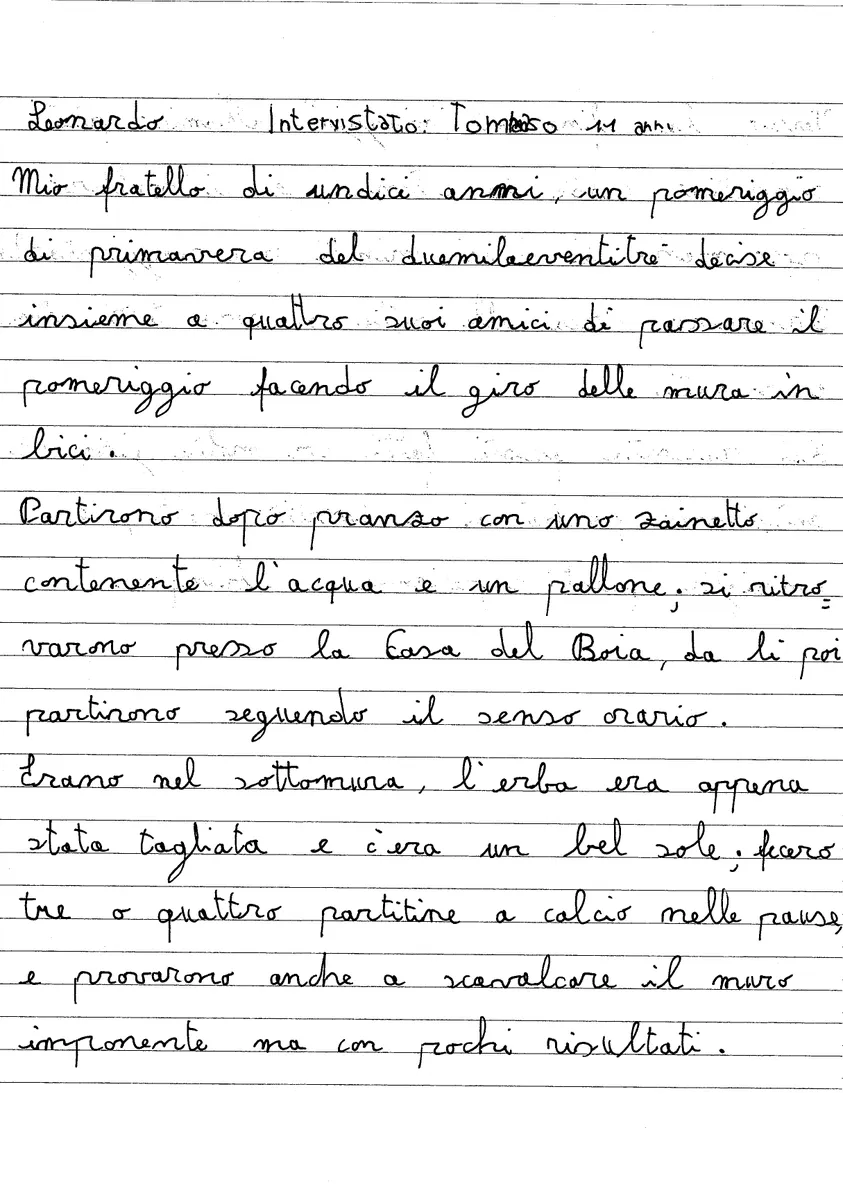 Leonardo Intervistato: Tommaso 11 anni
Mio fratello di undici anni, un pomeriggio
di primavera del duemilaeventitre decise
insieme a quattro suoi amici di passare il
pomeriggio facendo il giro delle mura in
bici.
Partirono dopo pranzo con uno zainetto
contenente l'acqua e un pallone; si ritro=
varono presso la Casa del Boia, da li poi
partirono seguendo il senso orario.
Erano nel sottomura, l'erba era appena
stata tagliata e c'era un bel sole; fecero
tre o quattro partitine a calcio nelle pause,
e provarono anche a scavalcare il muro
imponente ma con pochi risultati.